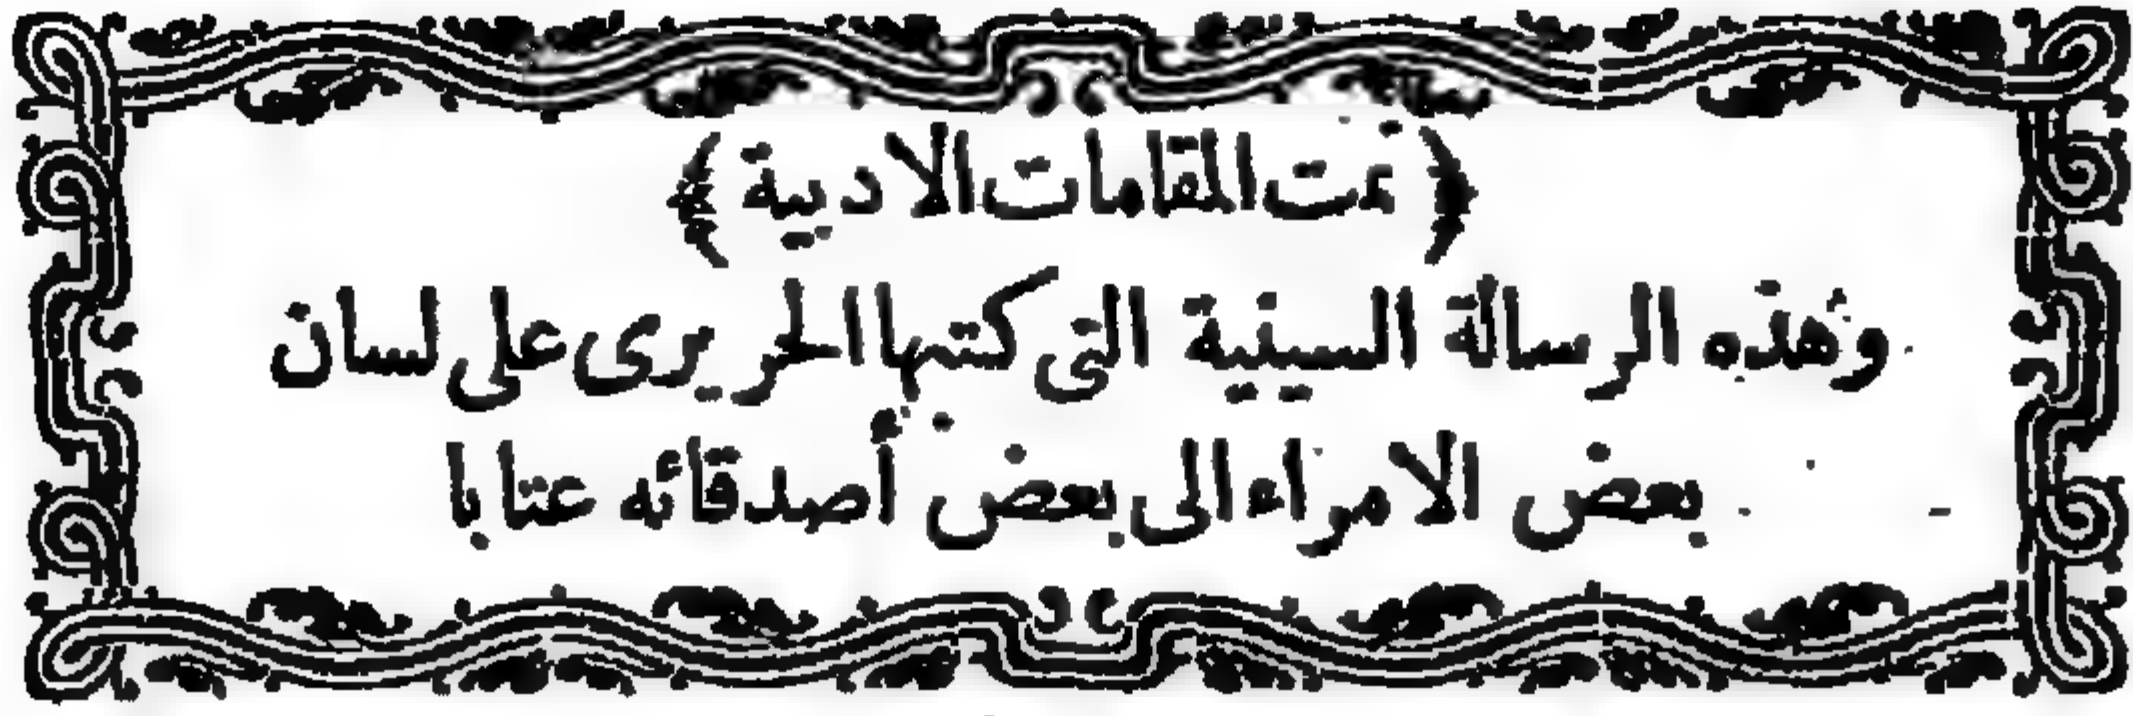 ﴿ تمت المقامات الادبية ﴾
وهذه الرسالة السينية التى كتبها الحريرى على لسان
بعض الامراء الى بعض أصدقائه عتابا